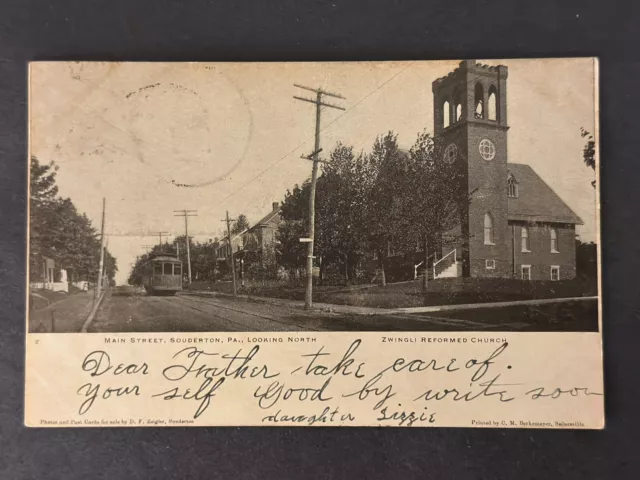 Main Street, Souderton, Pa., Looking North
Zwingli Reformed Church
Dear Father take care of.
your self Good by write soon
daughter Lizzie
Photos and Post Cards for sale by D. F. Zeigler, Souderton
Printed by C. M. Berkemeyer, Sellersville